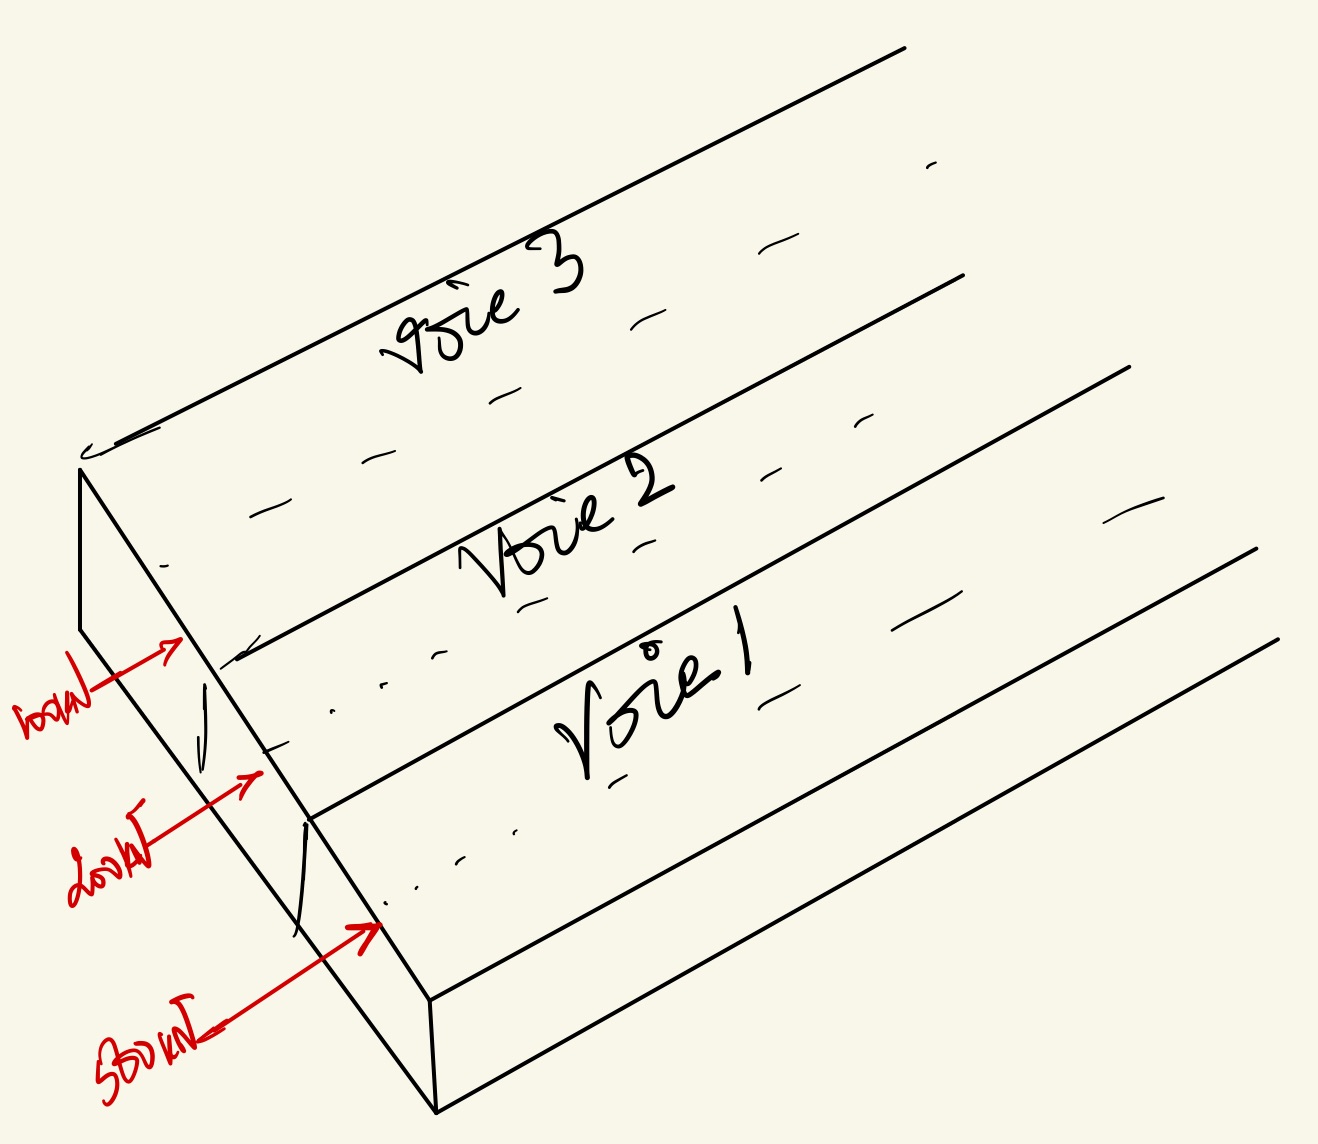 Voie 3
Voie 2
Voie 1
100kN
200kN
500kN